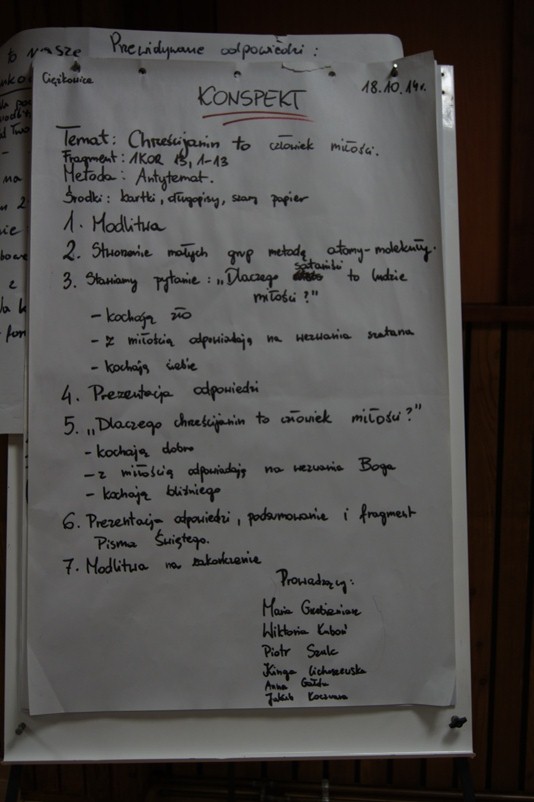 to nasze
Przewidywane odpowiedzi :
Ciężkowice
18.10.14r.
KONSPEKT
Temat : Chrześcijanin to człowiek miłości.
Fragment : 1KOR 13, 1-13
Metoda : Antytemat.
Środki : kartki, długopisy, szary papier
1. Modlitwa
2. Stworzenie małych grup metodą atomy-molekuły.
3. Stawiamy pytanie : „Dlaczego sataniści to ludzie
miłości?"
- kochają zło
- z miłością odpowiadają na wezwania szatana
- kochają siebie
4. Prezentacja odpowiedzi
5. „Dlaczego chrześcijanin to człowiek miłości?"
- kochają dobro
- z miłością odpowiadają na wezwania Boga
- kochają bliźniego
6. Prezentacja odpowiedzi, podsumowanie i fragment
Pisma Świętego.
7. Modlitwa na zakończenie
Prowadzący :
Maria
Wiktoria Kuboń
Piotr Szulc
Kinga
Anna Gałda
Jakub